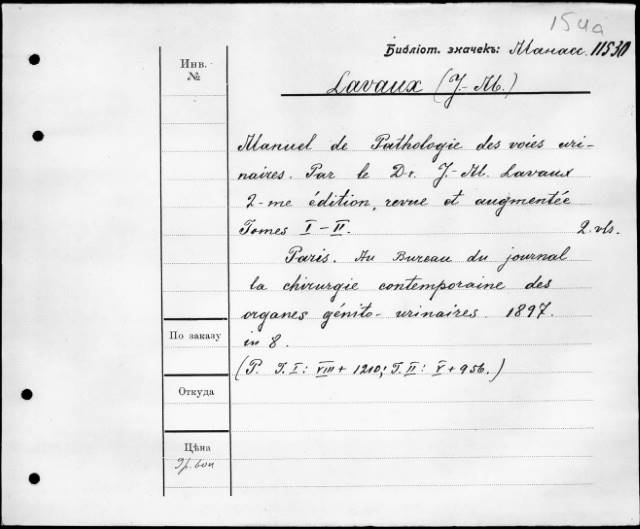 154a
Библіот. значекъ: Манасс. 11530
Инв.
№
Lavaux (J.-M.)
Manuel de Pathologie des voies uri-
naires. Par le Dr. J.-M. Lavaux
2-me édition, revue et augmentée
Tomes I-II. 2. vls.
Paris. Au Bureau du journal
la chirurgie contemporaine des
organes génito-urinaires. 1897.
in 8.
По заказу
(P. T. I: VIII + 1210; T. II: V + 956.)
Откуда
Цѣна